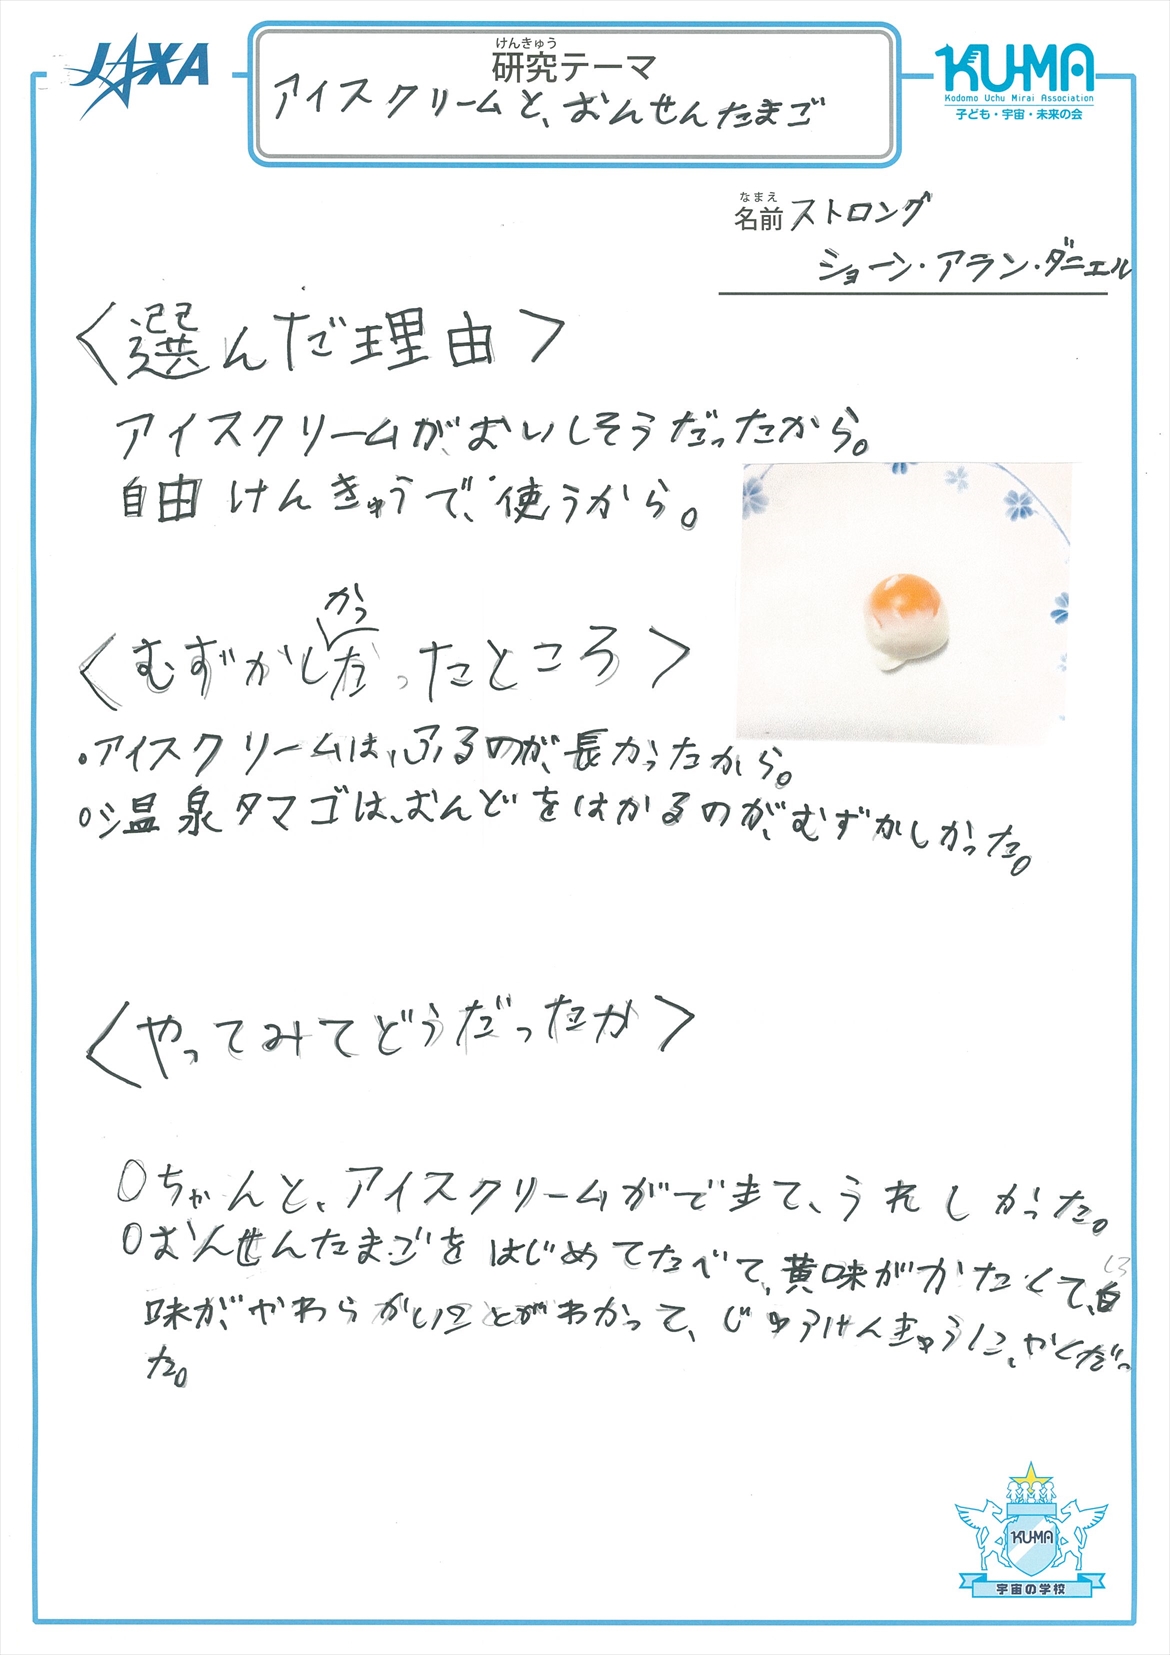 JAXA
けんきゅう
研究テーマ
アイスクリームと、おんせんたまご
KU-MA
Kodomo Uchu Mirai Association
子ども・宇宙・未来の会
なまえ
名前 ストロング
ショーン・アラン・ダニエル
<選んだ理由>
アイスクリームが、おいしそうだったから。
自由けんきゅうで、使うから。
かっ
<むずかしだったところ>
・アイスクリームは、ふるのが、長かったから。
○温泉タマゴは、おんどをはかるのが、むずかしかった。
<やってみてどうだったか>
○ちゃんと、アイスクリームができて、うれしかった。
○おんせんたまごをはじめてたべて、黄味がかたくて、白
しろ
味が、やわらかいことがわかって、じゆうけんきゅうに、やくだっ
た。
KU-MA
宇宙の学校